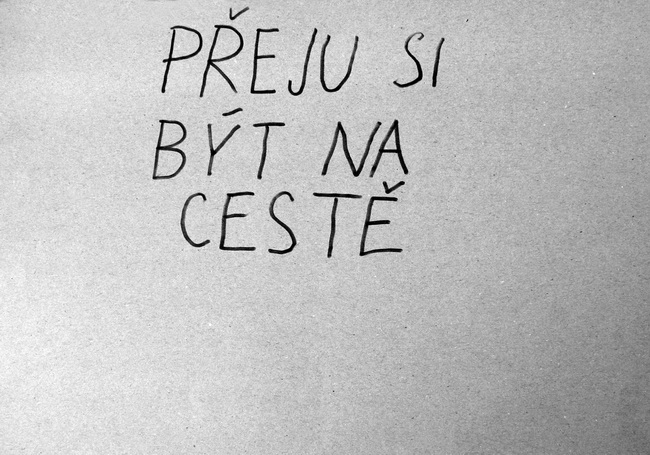 PŘEJU SI
BÝT NA
CESTĚ